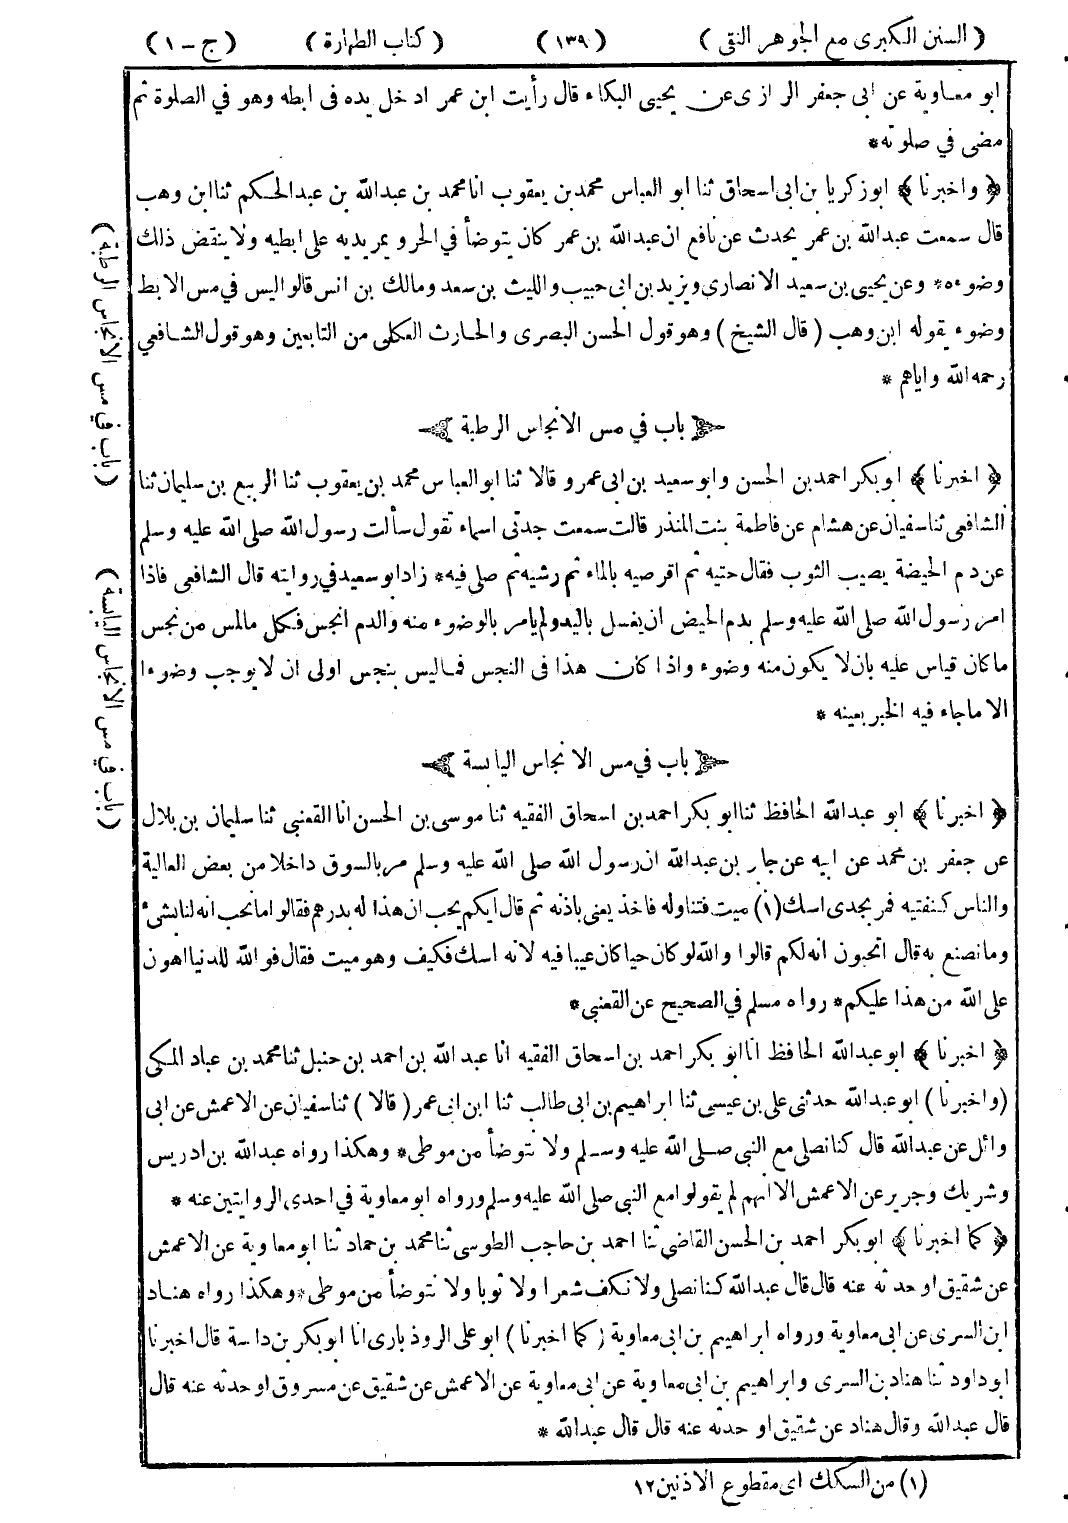 ( السنن الكبرى مع الجوهر النقى ) ( ١٣٩ ) ( كتاب الطهارة ) ( ج - ١ )
ابو معاوية عن ابى جعفر الرازى عن يحيى البكاء قال رأيت ابن عمر ادخل يده فى ابطه وهو في الصلوة ثم
مضى في صلوته *
﴿ واخبرنا ﴾ ابوزكريا بن ابى اسحاق ثنا ابو العباس محمد بن يعقوب انا محمد بن عبدالله بن عبدالحكم ثنا ابن وهب
قال سمعت عبدالله بن عمر يحدث عن نافع ان عبدالله بن عمر كان يتوضأ في الحر ويمر يديه على ابطيه ولا ينقض ذلك
وضوءه * وعن يحيى بن سعيد الانصارى ويزيد بن ابى حبيب والليث بن سعد ومالك بن انس قالوا ليس في مس الابط
وضوء يقوله ابن وهب ( قال الشيخ ) وهو قول الحسن البصرى والحارث العكلى من التابعين وهو قول الشافعي
رحمه الله واياهم *
باب في مس الانجاس الرطبة
﴿ اخبرنا ﴾ ابوبكر احمد بن الحسن وابو سعيد بن ابى عمرو قالا ثنا ابو العباس محمد بن يعقوب ثنا الربيع بن سليمان ثنا
الشافعى ثنا سفيان عن هشام عن فاطمة بنت المنذر قالت سمعت جدتى اسماء تقول سألت رسول الله صلى الله عليه وسلم
عن دم الحيضة يصيب الثوب فقال حتيه ثم اقرصيه بالماء ثم رشيه ثم صلى فيه * زاد ابو سعيد في روايته قال الشافعى فاذا
امر رسول الله صلى الله عليه وسلم بدم الحيض ان يغسل باليد ولم يامر بالوضوء منه والدم انجس فكل مالمس من نجس
ما كان قياس عليه بان لا يكون منه وضوء واذا كان هذا فى النجس فما ليس بنجس اولى ان لا يوجب وضوءا
الا ما جاء فيه الخبر بعينه *
باب في مس الانجاس اليابسة
﴿ اخبرنا ﴾ ابو عبدالله الحافظ ثنا ابو بكر احمد بن اسحاق الفقيه ثنا موسى بن الحسن انا القعنبى ثنا سليمان بن بلال
عن جعفر بن محمد عن ابيه عن جابر بن عبدالله ان رسول الله صلى الله عليه وسلم مر بالسوق داخلا من بعض العالية
والناس كنفتيه فمر بجدى اسك (١) ميت فتناوله فاخذ يعنى باذنه ثم قال أيكم يحب ان هذا له بدرهم فقالوا ما نحب انه لنا بشىء
وما نصنع به قال اتحبون انه لكم قالوا والله لو كان حيا كان عيبا فيه لانه اسك فكيف وهو ميت فقال فوالله للدنيا اهون
على الله من هذا عليكم * رواه مسلم في الصحيح عن القعنبى *
﴿ اخبرنا ﴾ ابو عبدالله الحافظ انا ابو بكر احمد بن اسحاق الفقيه انا عبد الله بن احمد بن حنبل ثنا محمد بن عباد المكى
(واخبرنا) ابو عبدالله حدثنى على بن عيسى ثنا ابراهيم بن ابى طالب ثنا ابن ابى عمر ( قالا ) ثنا سفيان عن الاعمش عن ابى
وائل عن عبدالله قال كنا نصلى مع النبى صلى الله عليه وسلم ولا نتوضأ من موطى * وهكذا رواه عبدالله بن ادريس
وشريك وجرير عن الاعمش الا انهم لم يقولوا مع النبى صلى الله عليه وسلم ورواه ابو معاوية في احدى الروايتين عنه *
﴿ كما اخبرنا ﴾ ابو بكر احمد بن الحسن القاضي ثنا احمد بن حاجب الطوسى ثنا محمد بن حماد ثنا ابو معاوية عن الاعمش
عن شقيق او حدثه عنه قال قال عبدالله كنا نصلى ولا نكف شعرا ولا ثوبا ولا نتوضأ من موطى * وهكذا رواه هناد
ابن السرى عن ابى معاوية ورواه ابراهيم بن ابى معاوية ( كما اخبرنا ) ابو على الروذبارى انا ابو بكر بن داسة قال اخبرنا
ابو داود ثنا هناد بن السرى وابراهيم بن ابى معاوية عن ابى معاوية عن الاعمش عن شقيق عن مسروق او حدثه عنه قال
قال عبدالله وقال هناد عن شقيق او حدثه عنه قال قال عبدالله *
(١) من السكك اى مقطوع الاذنين ١٢
( باب في مس الانجاس الرطبة )
( باب في مس الانجاس اليابسة )